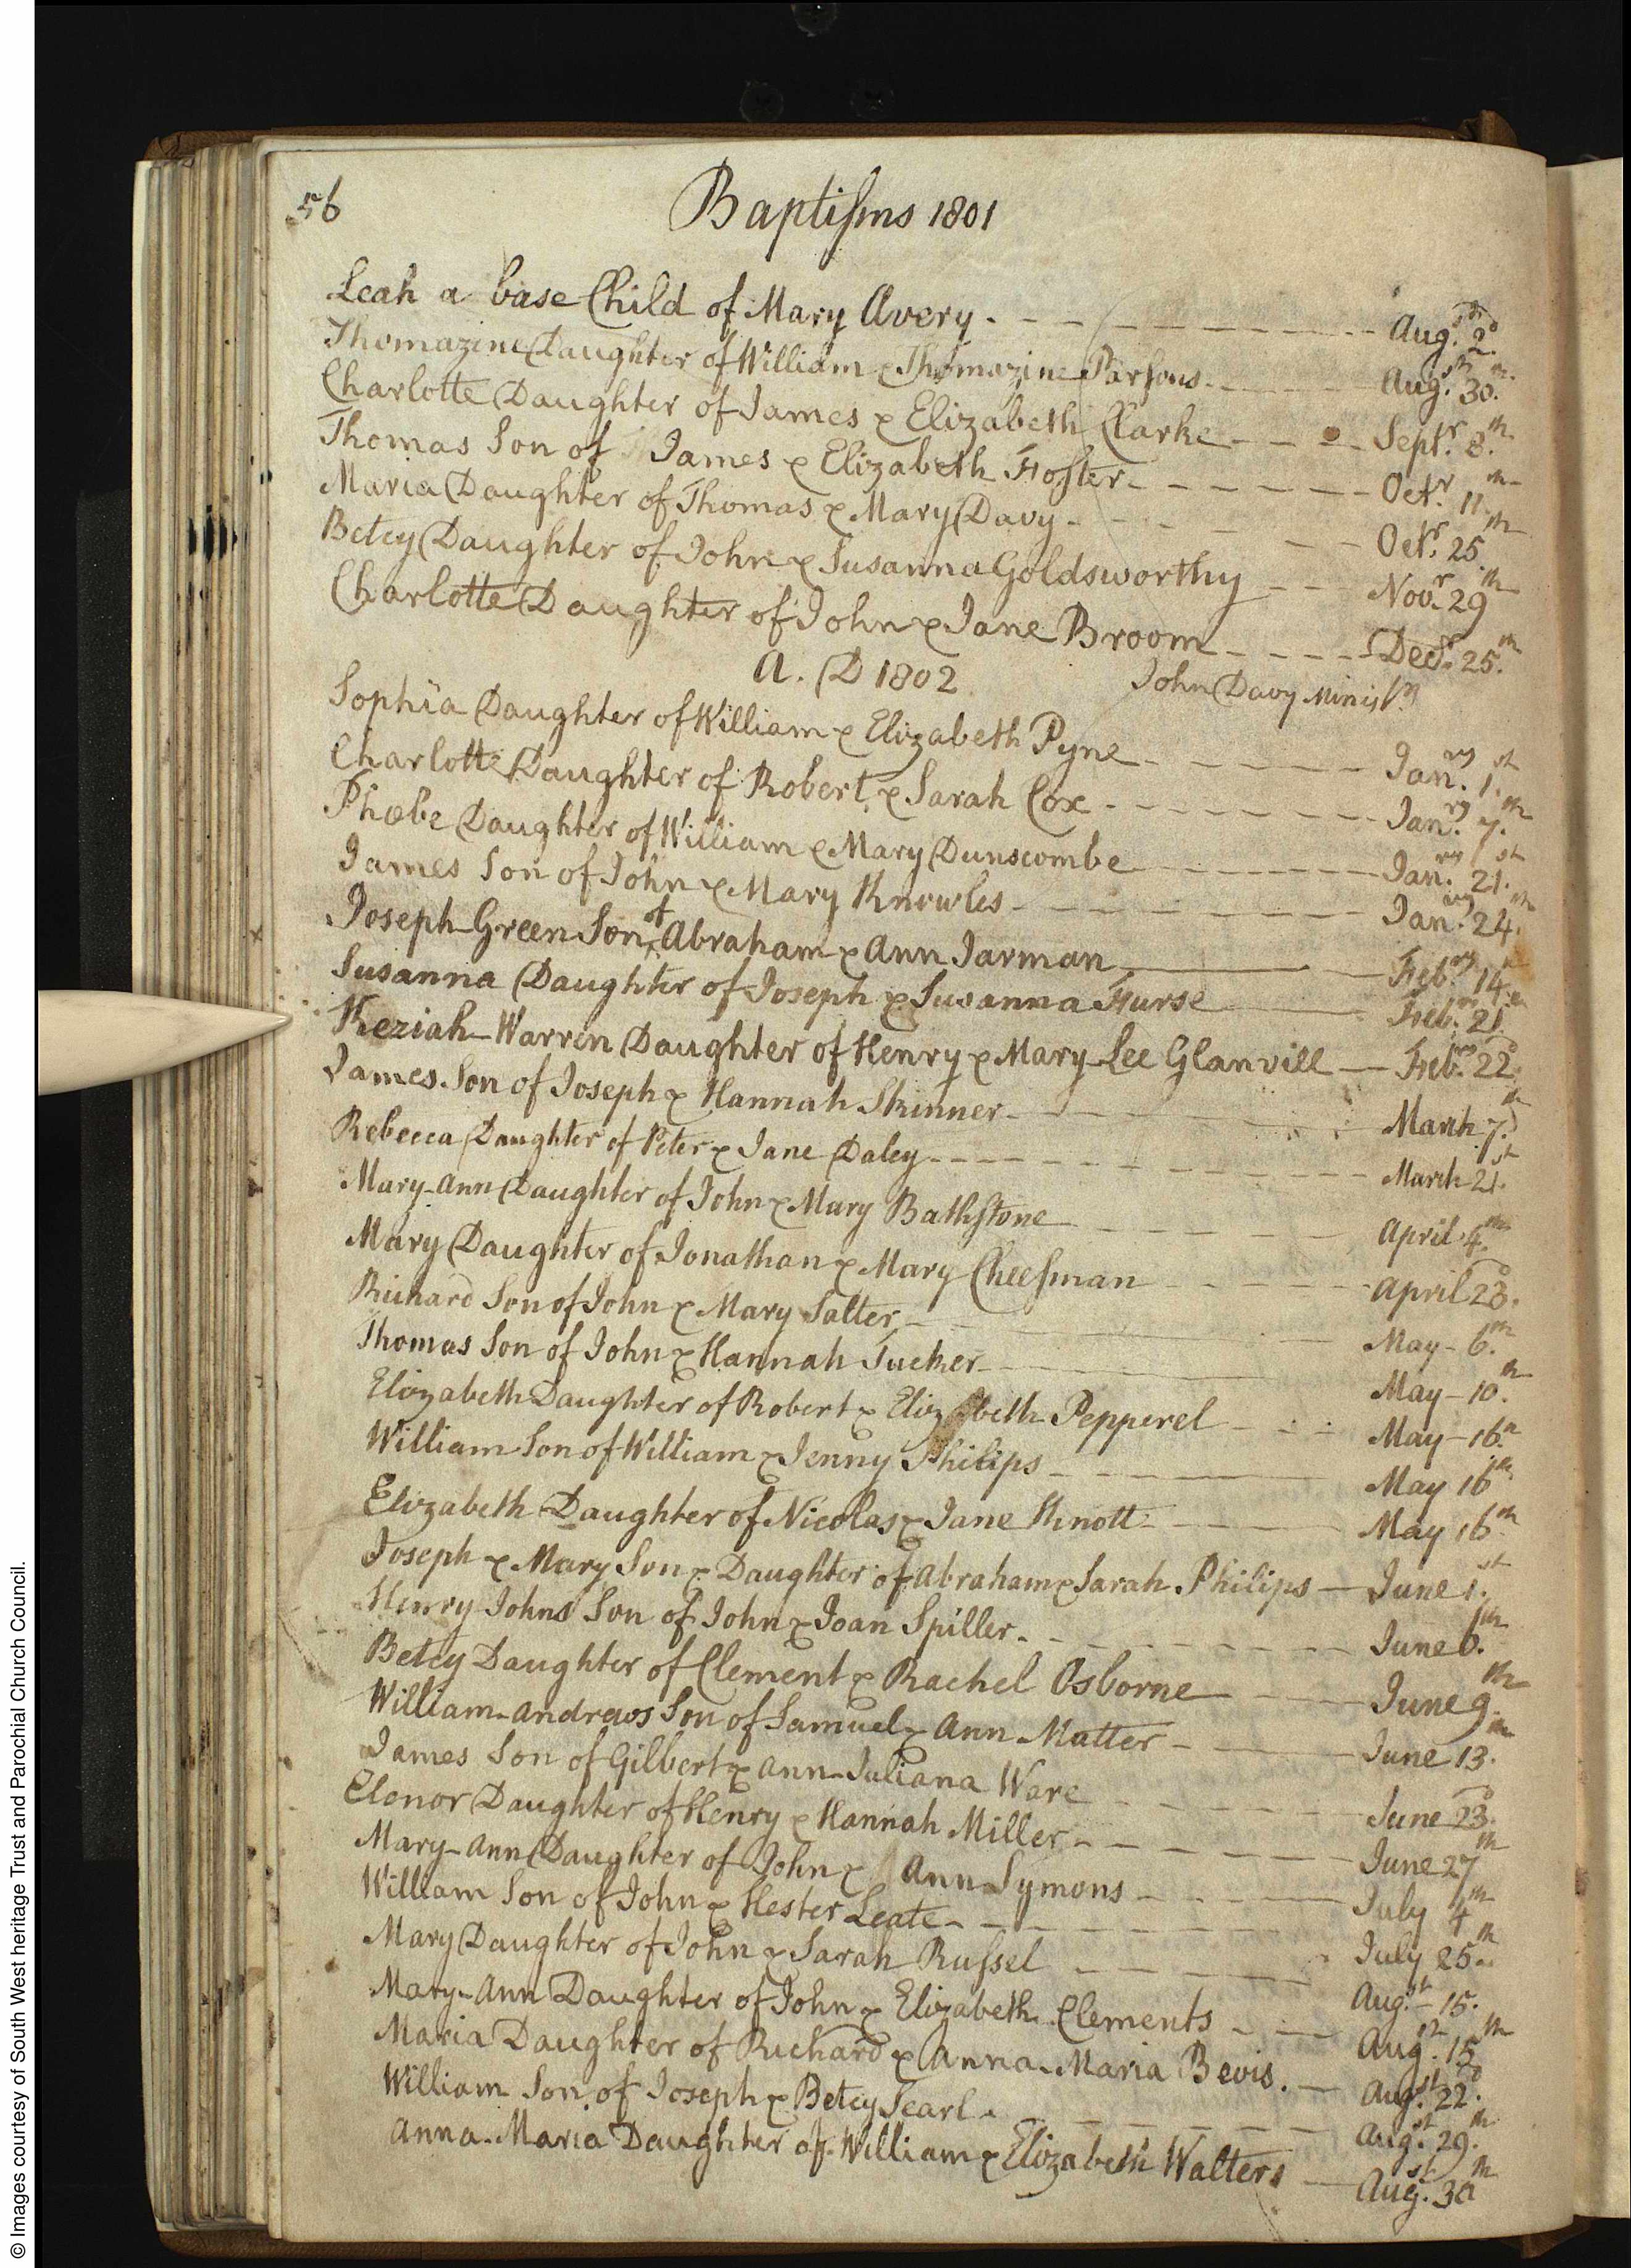 56
Baptiſms 1801
Leah a base Child of Mary Avery. Augst. 2d.
Thomazine Daughter of William & Thomazine Parſons. Augst. 30th.
Charlotte Daughter of James & Elizabeth Clarke Septr. 8th.
Thomas Son of James & Elizabeth Foſter Octr. 11th
Maria Daughter of Thomas & Mary Davy Octr. 25th
Betcy Daughter of John & Susanna Goldsworthy Novr. 29th
Charlotte Daughter of John & Jane Broom Decr. 25th.
A. D 1802 John Davy Miniſtr
Sophia Daughter of William & Elizabeth Pyne Janry. 1st.
Charlotte Daughter of Robert & Sarah Cox Janry. 7th.
Phœbe Daughter of William & Mary Dunscombe Janry. 21st.
James Son of John & Mary Knowles Janry. 24th.
Joseph-Green Son of Abraham & Ann Jarman Febry. 14th
Susanna Daughter of Joseph & Susanna Hurse Febry. 21st
Keziah-Warren Daughter of Henry & Mary-Lee Glanvill Febry. 22d.
James Son of Joseph & Hannah Skinner March 7th.
Rebecca Daughter of Peter & Jane Daley March 21st.
Mary-Ann Daughter of John & Mary Bathſtone April 4th.
Mary Daughter of Jonathan & Mary Cheeſman April 23d.
Richard Son of John & Mary Salter May 6th.
Thomas Son of John & Hannah Tucker May 10th.
Elizabeth Daughter of Robert & Elizabeth Pepperel May 16th
William Son of William & Jenny Philips May 16th
Elizabeth Daughter of Nicolas & Jane Knott May 16th
Joseph & Mary Son & Daughter of Abraham & Sarah Philips June 1st.
Henry Johns Son of John & Joan Spiller. June 6th.
Betcy Daughter of Clement & Rachel Osborne June 9th.
William-Andrews Son of Samuel & Ann Matter June 13th.
James Son of Gilbert & Ann-Juliana Ware June 23d.
Elenor Daughter of Henry & Hannah Miller June 27th
Mary-Ann Daughter of John & Ann Symons July 4th
William Son of John & Hester Leate July 25th
Mary Daughter of John & Sarah Ruſsel Augst. 15th.
Mary-Ann Daughter of John & Elizabeth Clements Augst. 15th
Maria Daughter of Richard & Anna-Maria Bevis. Augst. 22d.
William Son of Joseph & Betcy Searl. Augst. 29th.
Anna-Maria Daughter of William & Elizabeth Walters Augst. 30th
© Images courtesy of South West heritage Trust and Parochial Church Council.